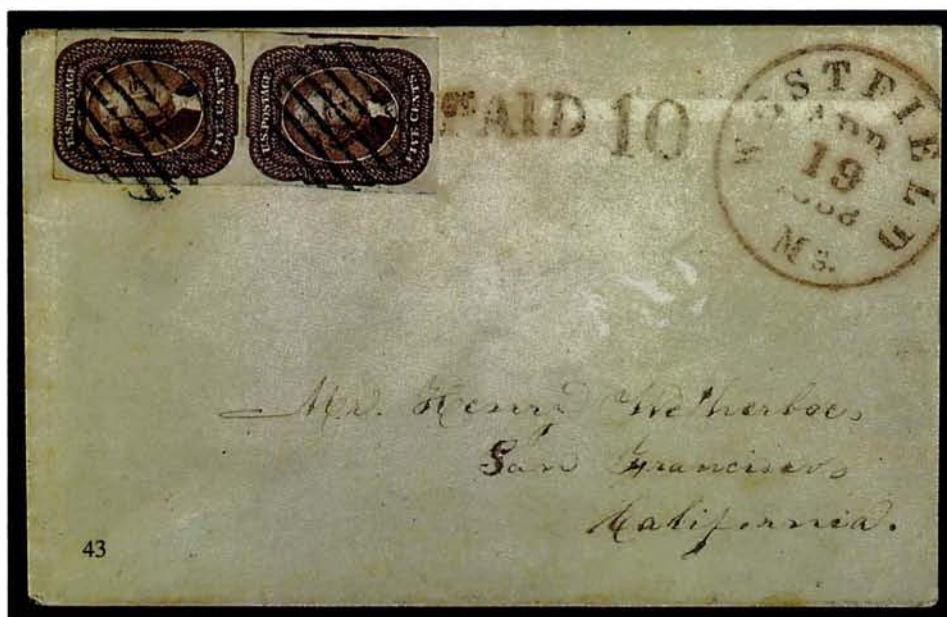 U.S. POSTAGE
FIVE CENTS
U.S. POSTAGE
FIVE CENTS
PAID 10
WESTFIELD
APR
19
Ms.
Mr. Henry Wetherbee,
San Francisco,
California.
43